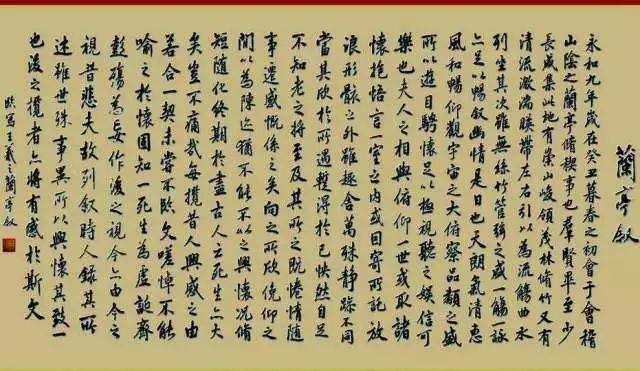 蘭亭叙
永和九年歲在癸丑暮春之初會于會稽
山陰之蘭亭脩稧事也群賢畢至少
長咸集此地有崇山峻領茂林脩竹又有
清流激湍暎帶左右引以為流觴曲水
列坐其次雖無絲竹管弦之盛一觴一詠
亦足以暢叙幽情是日也天朗氣清惠
風和暢仰觀宇宙之大俯察品類之盛
所以遊目騁懷足以極視聽之娛信可
樂也夫人之相與俯仰一世或取諸
懷抱悟言一室之內或因寄所託放
浪形骸之外雖趣舍萬殊靜躁不同
當其欣於所遇暫得於己怏然自足
不知老之將至及其所之既惓情隨
事遷感慨係之矣向之所欣俛仰之
間以為陳迹猶不能不以之興懷況脩
短隨化終期於盡古人云死生亦大
矣豈不痛哉每攬昔人興感之由
若合一契未嘗不臨文嗟悼不能
喻之於懷固知一死生為虛誕齊
彭殤為妄作後之視今亦由今之
視昔悲夫故列叙時人錄其所
述雖世殊事異所以興懷其致一
也後之攬者亦將有感於斯文
臨寫王羲之蘭亭叙